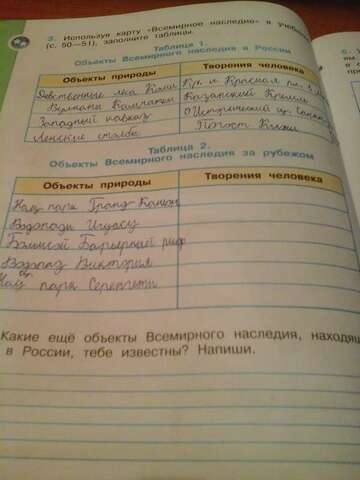 3. Используя карту «Всемирное наследие» в учебнике
(с. 50—51), заполните таблицы.
Таблица 1.
Объекты Всемирного наследия в России
Объекты природы Творения человека
Девственные леса Коми Кр и Красная пл.
Вулканы Камчатки Казанский Кремль
Западный Кавказ Исторический ц.
Ленские столбы Погост Кижи
Таблица 2.
Объекты Всемирного наследия за рубежом
Объекты природы Творения человека
Нац парк Гранд-Каньон
Водопады Игуасу
Большой Барьерный риф
Водопад Виктория
Нац парк Серенгети
Какие ещё объекты Всемирного наследия, находящ
в России, тебе известны? Напиши.